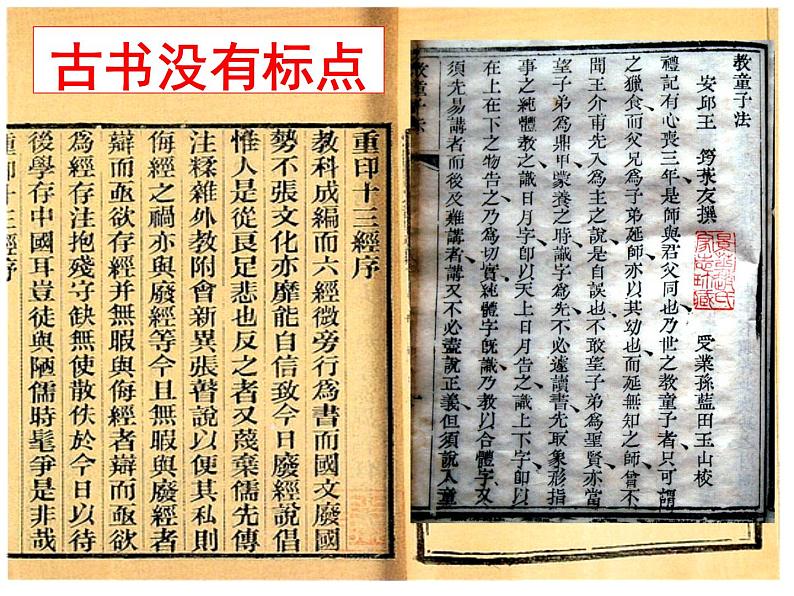 古书没有标点
教童子法
安邱王 筠菉友撰 受業孫藍田玉山校
禮記有心喪三年是師與君父同也乃世之教童子者只可謂
之獵食而父兄爲子弟延師亦以其幼也而延無知之師曾不
問王介甫先入爲主之說是自誤也不敢望子弟爲聖賢亦當
望子弟爲鼎甲蒙養之時識字爲先不必遽讀書先取象形指
事之純體教之識日月字即以天上日月告之識上下字即以
在上在下之物告之乃爲切實純體字既識乃教以合體字又
須先易講者而後及難講者講又不必盡說正義但須說入童
教童子法
重印十三經序
教科成編而六經微旁行爲書而國文廢國
勢不張文化亦靡能自信致今日廢經說倡
惟人是從良足悲也反之者又蔑棄儒先傳
注糅雜外教附會新異張瞽說以便其私則
侮經之禍亦與廢經等今且無暇與廢經者
辯而亟欲存經并無暇與侮經者辯而亟欲
爲經存注抱殘守缺無使散佚於今日以待
後學存中國耳豈徒與陋儒時髦爭是非哉
重印十三經序